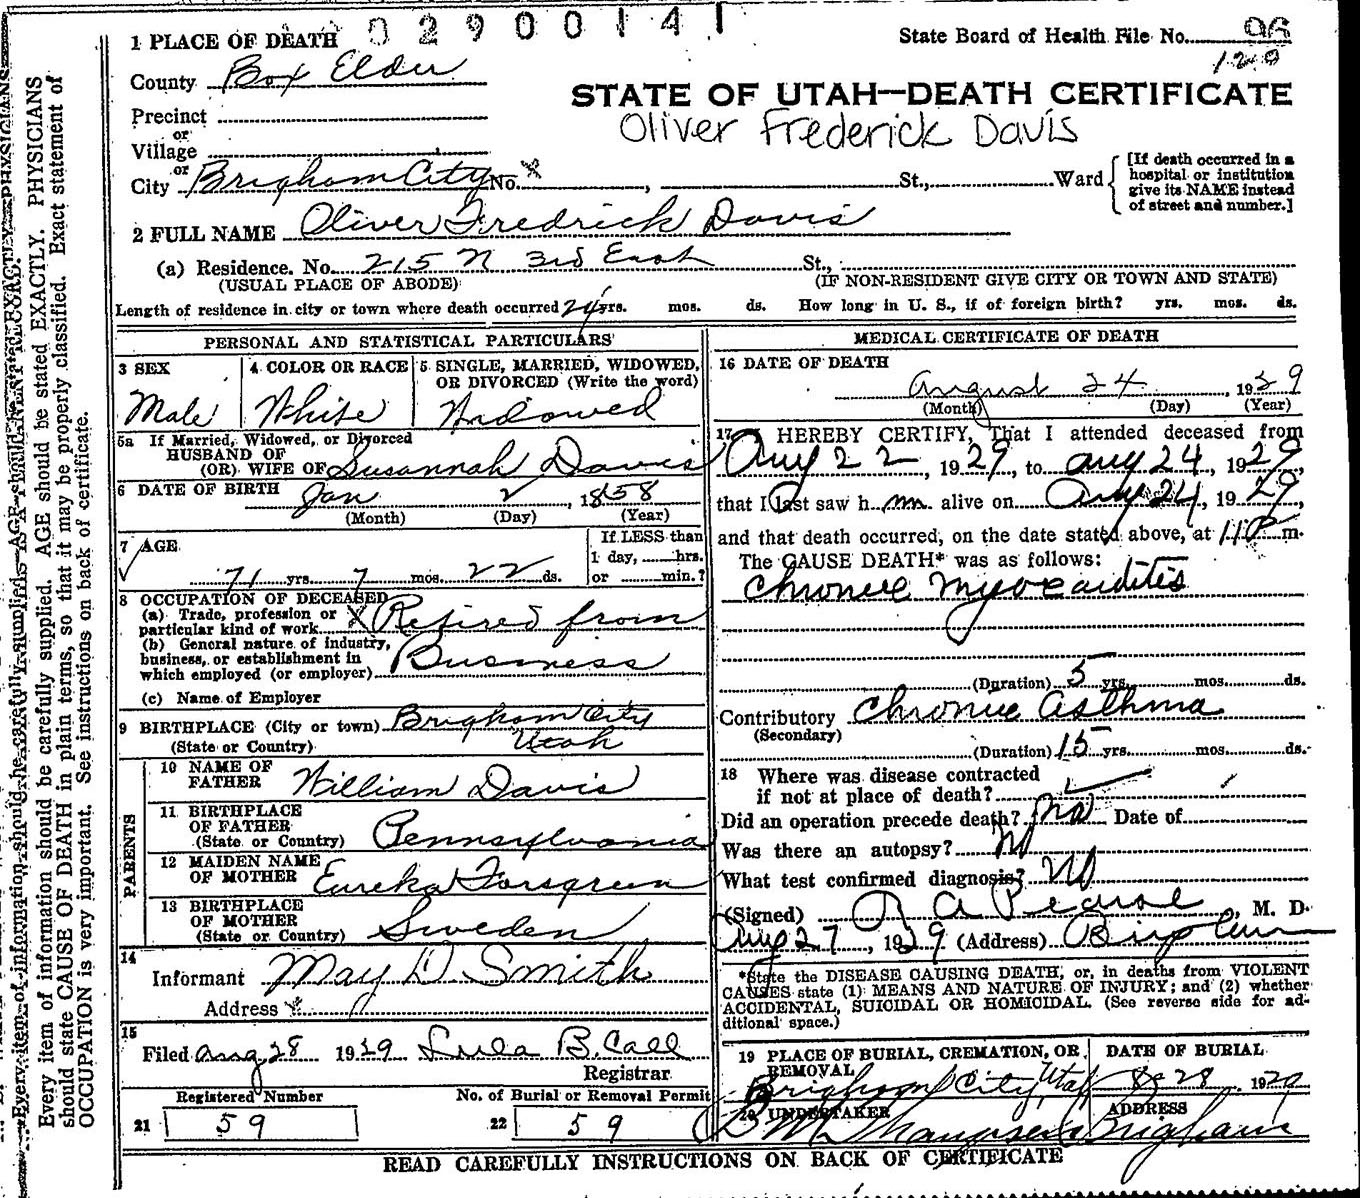 02900141
1 PLACE OF DEATH
State Board of Health File No. 96
120
County Box Elder
STATE OF UTAH—DEATH CERTIFICATE
Oliver Frederick Davis
Precinct
or
Village
or
City Brigham City No. x , St., Ward
[If death occurred in a hospital or institution give its NAME instead of street and number.]
2 FULL NAME Oliver Fredrick Davis
(a) Residence. No. 215 N 3rd East St.,
(USUAL PLACE OF ABODE) (IF NON-RESIDENT GIVE CITY OR TOWN AND STATE)
Length of residence in city or town where death occurred yrs. mos. ds. How long in U. S., if of foreign birth? yrs. mos. ds.
PERSONAL AND STATISTICAL PARTICULARS
3 SEX
Male
4 COLOR OR RACE
White
5 SINGLE, MARRIED, WIDOWED,
OR DIVORCED (Write the word)
Widowed
5a If Married, Widowed, or Divorced
HUSBAND OF
(OR) WIFE OF Susannah Davis
6 DATE OF BIRTH Jan 2, 1858
(Month) (Day) (Year)
7 AGE
71 yrs. 7 mos. 22 ds.
If LESS than
1 day, hrs.
or min.?
8 OCCUPATION OF DECEASED
(a) Trade, profession or
particular kind of work Retired from
(b) General nature of industry,
business, or establishment in
which employed (or employer) Business
(c) Name of Employer
9 BIRTHPLACE (City or town) Brigham City
(State or Country) Utah
PARENTS
10 NAME OF
FATHER William Davis
11 BIRTHPLACE
OF FATHER
(State or Country) Pennsylvania
12 MAIDEN NAME
OF MOTHER Eureka Forsgreen
13 BIRTHPLACE
OF MOTHER
(State or Country) Sweden
14
Informant May D. Smith
Address
15
Filed Aug 28 1929 Lula B. Call
Registrar
Registered Number
21 59
No. of Burial or Removal Permit
22 59
MEDICAL CERTIFICATE OF DEATH
16 DATE OF DEATH
August 24, 1929
(Month) (Day) (Year)
17 I HEREBY CERTIFY, That I attended deceased from
Aug 22, 1929, to Aug 24, 1929,
that I last saw h im alive on Aug 24, 1929
and that death occurred, on the date stated above, at 11 P m.
The CAUSE DEATH* was as follows:
Chronic Myocarditis
(Duration) 5 yrs. mos. ds.
Contributory Chronic Asthma
(Secondary)
(Duration) 15 yrs. mos. ds.
18 Where was disease contracted
if not at place of death?
Did an operation precede death? No Date of
Was there an autopsy? No
What test confirmed diagnosis? No
(Signed) R A Pearse, M. D.
Aug 27, 1929 (Address) Brigham
*State the DISEASE CAUSING DEATH, or, in deaths from VIOLENT
CAUSES state (1) MEANS AND NATURE OF INJURY; and (2) whether
ACCIDENTAL, SUICIDAL OR HOMICIDAL. (See reverse side for ad-
ditional space.)
19 PLACE OF BURIAL, CREMATION, OR
REMOVAL
Brigham City, Utah
DATE OF BURIAL
8-28 1929
20 UNDERTAKER
ADDRESS
Brigham
READ CAREFULLY INSTRUCTIONS ON BACK OF CERTIFICATE
Every item of information should be carefully supplied. AGE should be stated EXACTLY. PHYSICIANS
should state CAUSE OF DEATH in plain terms, so that it may be properly classified. Exact statement of
OCCUPATION is very important. See instructions on back of certificate.